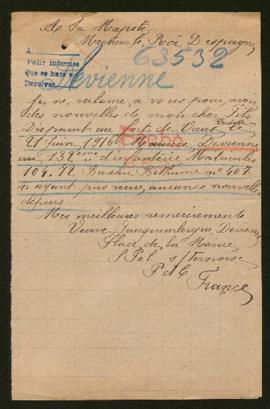 A Sa Majesté
Monsieur le Roi Despagne
63532
A
Pedir informes
que se hace
Devolver
Devienne
je, ne, reclame, a vous pour, avoir
des nouvelles de mon cher fils
Disparut au fort de Vaux le
21 Juin 1916 Maurice Devienne
au 139eme d'infanterie Matricules
104. Bureau Béthune n° 407
n'ayant pas reçu, aucunes nouvelles
depuis
Mes meilleures remerciements
Veuve Devienne
Place de la Mairie
St Pol s/ Ternoise
P d C
France